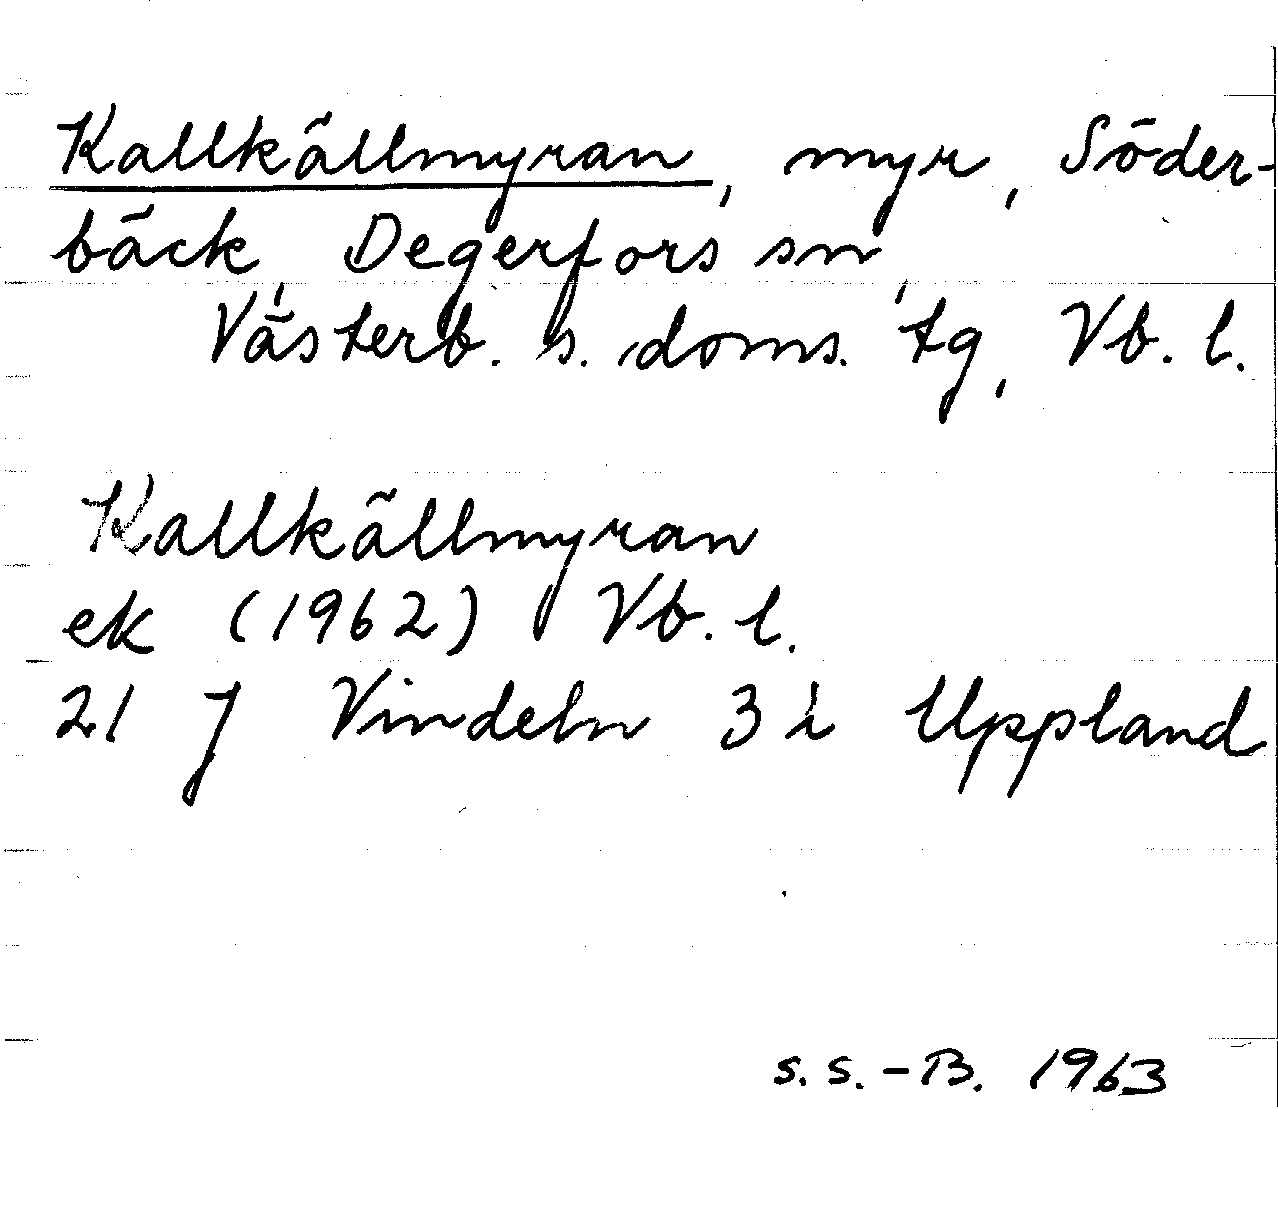 Kallkällmyran, myr, Söder-
bäck, Degerfors sn,
Västerb. s. doms. tg, Vb. l.
Kallkällmyran
ek (1962) Vb. l.
21 J Vindeln 3 i Uppland
s. s. - B. 1963